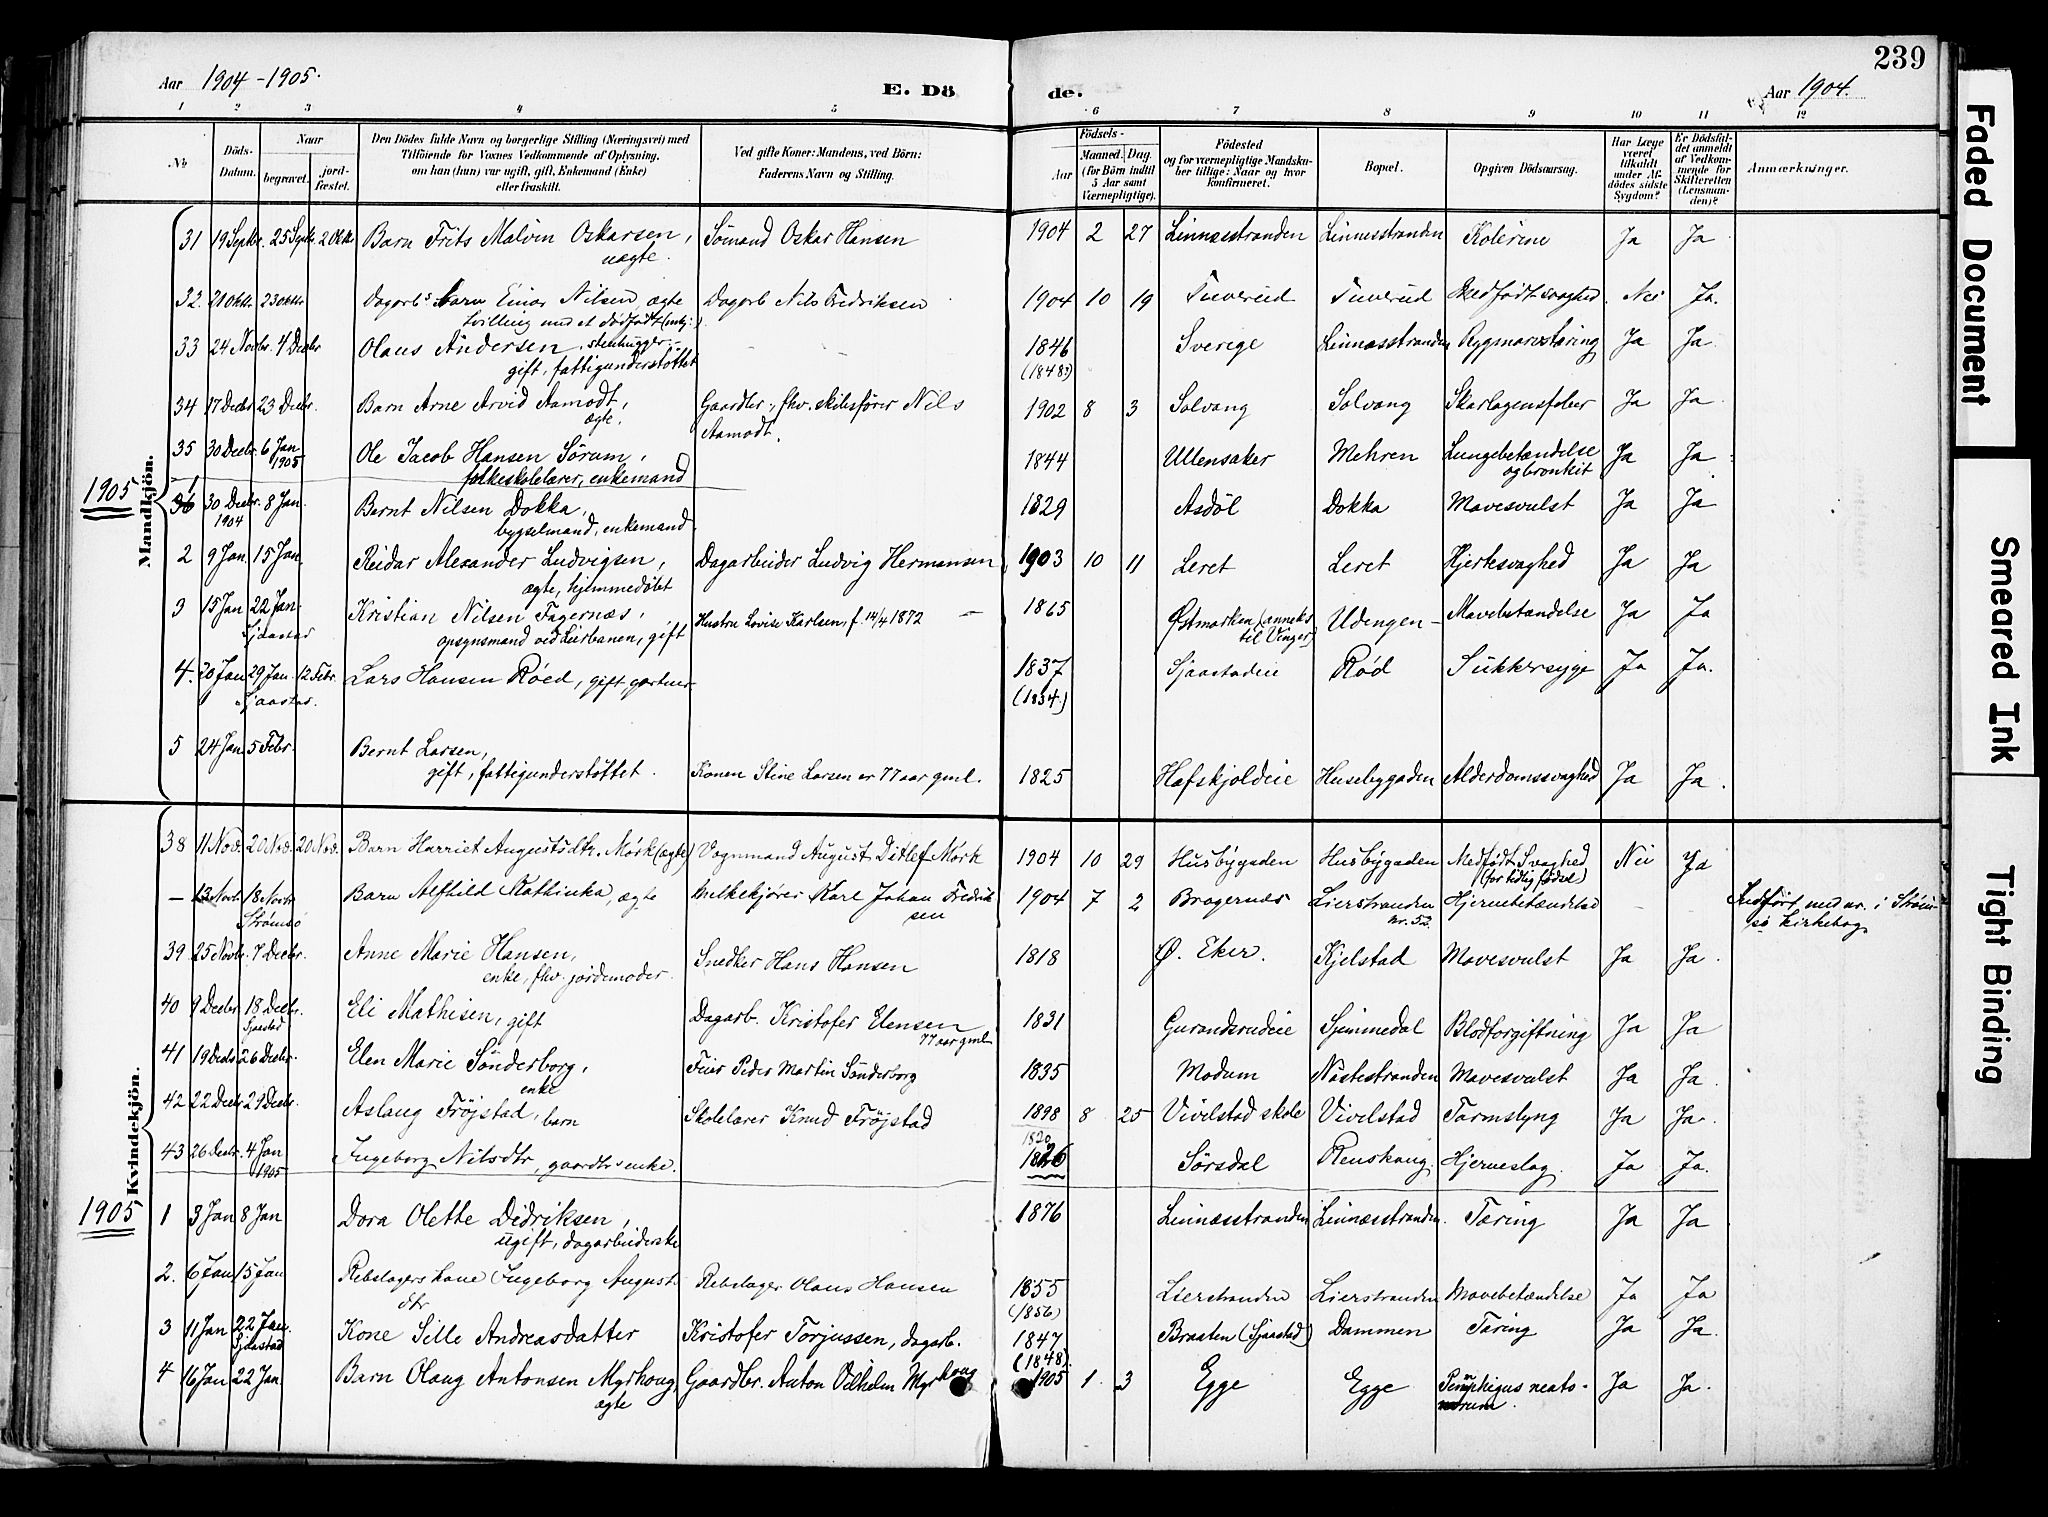 239
Aar 1904-1905.
E. Dö
de.
Aar 1904.
1 2 3 4 5 6 7 8 9 10 11 12
No
Döds-Datum.
Naar
begravet.
jord-fæstet.
Den Dödes fulde Navn og borgerlige Stilling (Næringsvei) med
Tilföiende for Voxnes Vedkommende af Oplysning.
om han (hun) var ugift, gift, Enkemand (Enke)
eller fraskilt.
Ved gifte Koner: Mandens, ved Börn:
Faderens Navn og Stilling.
Födsels-
Aar
Maaned.
Dag.
(for Børn indtil
5 Aar samt
Værnepligtige).
Födested
og for værnepligtige Mandska-
ber tillige: Naar og hvor
konfirmeret.
Bopæl.
Opgiven Dödsaarsag.
Har Læge
været
tilkaldt
under Af-
dödes sidste
Sygdom?
Er Dödsfal-
det anmeldt
af Vedkom-
mende for
Skifteretten
(Lensman-
den)?
Anmærkninger.
Mandkjön.
31 19 Septbr. 25 Septbr. 2 Oktbr. Barn Frits Malvin Oskarsen, Sømand Oskar Hansen 1904 2 27 Linnesstranden Linnesstranden Kolerine Ja Ja
uægte.
32. 21 Oktbr. 23 Oktbr. Dagarbs barn Einar Nilsen, ægte Dagarb Nils Fredriksen 1904 10 19 Tuverud Tuverud Medfødt svaghed Nei Ja.
tvilling med et dødfødt
33 24 Novbr. 4 Decbr Olaus Andersen, stenhugger, 1846 Sverige Linnesstranden Rygmarvstæring Ja Ja.
gift, fattigunderstøttet (1848?)
34 17 Decbr 23 Decbr. Barn Arne Arvid Aamodt, Gaardbr., fhv. skibsfører Nils 1902 8 3 Solvang Solvang Skarlagensfeber Ja Ja.
ægte. Aamodt.
35 30 Decbr. 6 Jan Ole Jacob Hansen Sørum, 1844 Ullensaker Mehren Lungebetændelse Ja Ja
1905 folkeskolelærer, enkemand og bronkit
1905
1
36 30 Decbr. 8 Jan. Bernt Nilsen Dokka, 1829 Asdøl Dokka Mavesvulst Ja Ja
1904 bygselmand, enkemand.
2 9 Jan. 15 Jan Reidar Alexander Ludvigsen, Dagarbeider Ludvig Hermansen 1903 10 11 Leret Leret Hjertesvaghed Ja Ja
ægte, hjemmedøbt
3 15 Jan 22 Jan. Kristian Nilsen Fagernæs, Hustru Lovise Karlsen, f. 14/4 1872 1865 Østmarken (anneks Udengen Mavebetændelse Ja Ja
Sjåstad opsynsmand ved Lierbanen, gift til Vinger)
4. 20 Jan 29 Jan. 12 Febr. Lars Hansen Røed, gift, gartner 1837 Sjaastadeie Rød Sukkersyge Ja Ja.
Sjaastad. (1834.)
5 24 Jan. 5 Febr. Bernt Larsen, 1825 Hafskjoldeie Husebygaden Alderdomssvaghed Ja Ja.
gift, fattigunderstøttet. Konen Stine Larsen er 77 aar gml.
Kvindekjön.
38 11 Nov. 20 Nov. 20 Nov. Barn Harriet Augustsdtr. Mørk (ægte) Vognmand August Ditlef Mørk 1904 10 29 Husbygaden Husbygaden Medfødt Svaghed Nei Ja
(for tidlig fødsel)
– 13 Novbr 18 Novbr Barn Alfhild Kathinka, ægte Melkekjører Karl Johan Fredrik 1904 7 2 Bragernæs Lierstranden Hjernebetændelse – – Indført med nr. i Strøm-
Strømsø sen nr. 52. sø kirkebog
39 25 Novbr. 7 Decbr. Anne Marie Hansen, Snedker Hans Hansen 1818 Ø. Eker. Kjelstad Mavesvulst Ja Ja.
enke, fhv. jordemoder.
40 9 Decbr. 18 Decbr. Eli Mathisen, gift Dagarb. Kristofer Elensen 1831 Guranderudeie Sjimmedal Blodforgiftning Ja Ja
Sjaastad 77 aar gml.
41 19 Decbr 26 Decbr. Elen Marie Sønderborg, Feier Peder Martin Sønderborg 1835 Modum Nøstestranden Mavesvulst Ja Ja.
enke
42 22 Decbr 29 Decbr. Aslaug Frøjstad, barn Skolelærer Knud Frøjstad 1898 8 25 Vivelstad skole Vivelstad Tarmslyng Ja Ja.
1820
43 26 Decbr. 4 Jan Ingeborg Nilsdtr, gaardbrs enke. 1826 Sørsdal Renskoug. Hjerneslag. Ja Ja.
1905
1905
1 3 Jan 8 Jan Dora Olette Didriksen, 1876 Linnæsstranden Linnæsstranden. Tæring Ja Ja
ugift, dagarbeiderske
2. 6 Jan. 15 Jan Rebslagers kone Ingeborg August- Rebslager Olaus Hansen 1855 Lierstranden Lierstranden Mavebetændelse Ja Ja
dtr (1856)
3 11 Jan 22 Jan. Kone Sille Andreasdatter Kristofer Torjussen, dagarb. 1847 Braaten (Sjaastad) Dammen Tæring Ja Ja.
Sjåstad (1848).
4 16 Jan 22 Jan. Barn Olaug Antonsen Myrhoug, Gaardbr. Anton Vilhelm Myrhoug 1905 1 3 Egge Egge Pemphigus neato- Ja Ja.
ægte norum.
Faded Document
Smeared Ink
Tight Binding